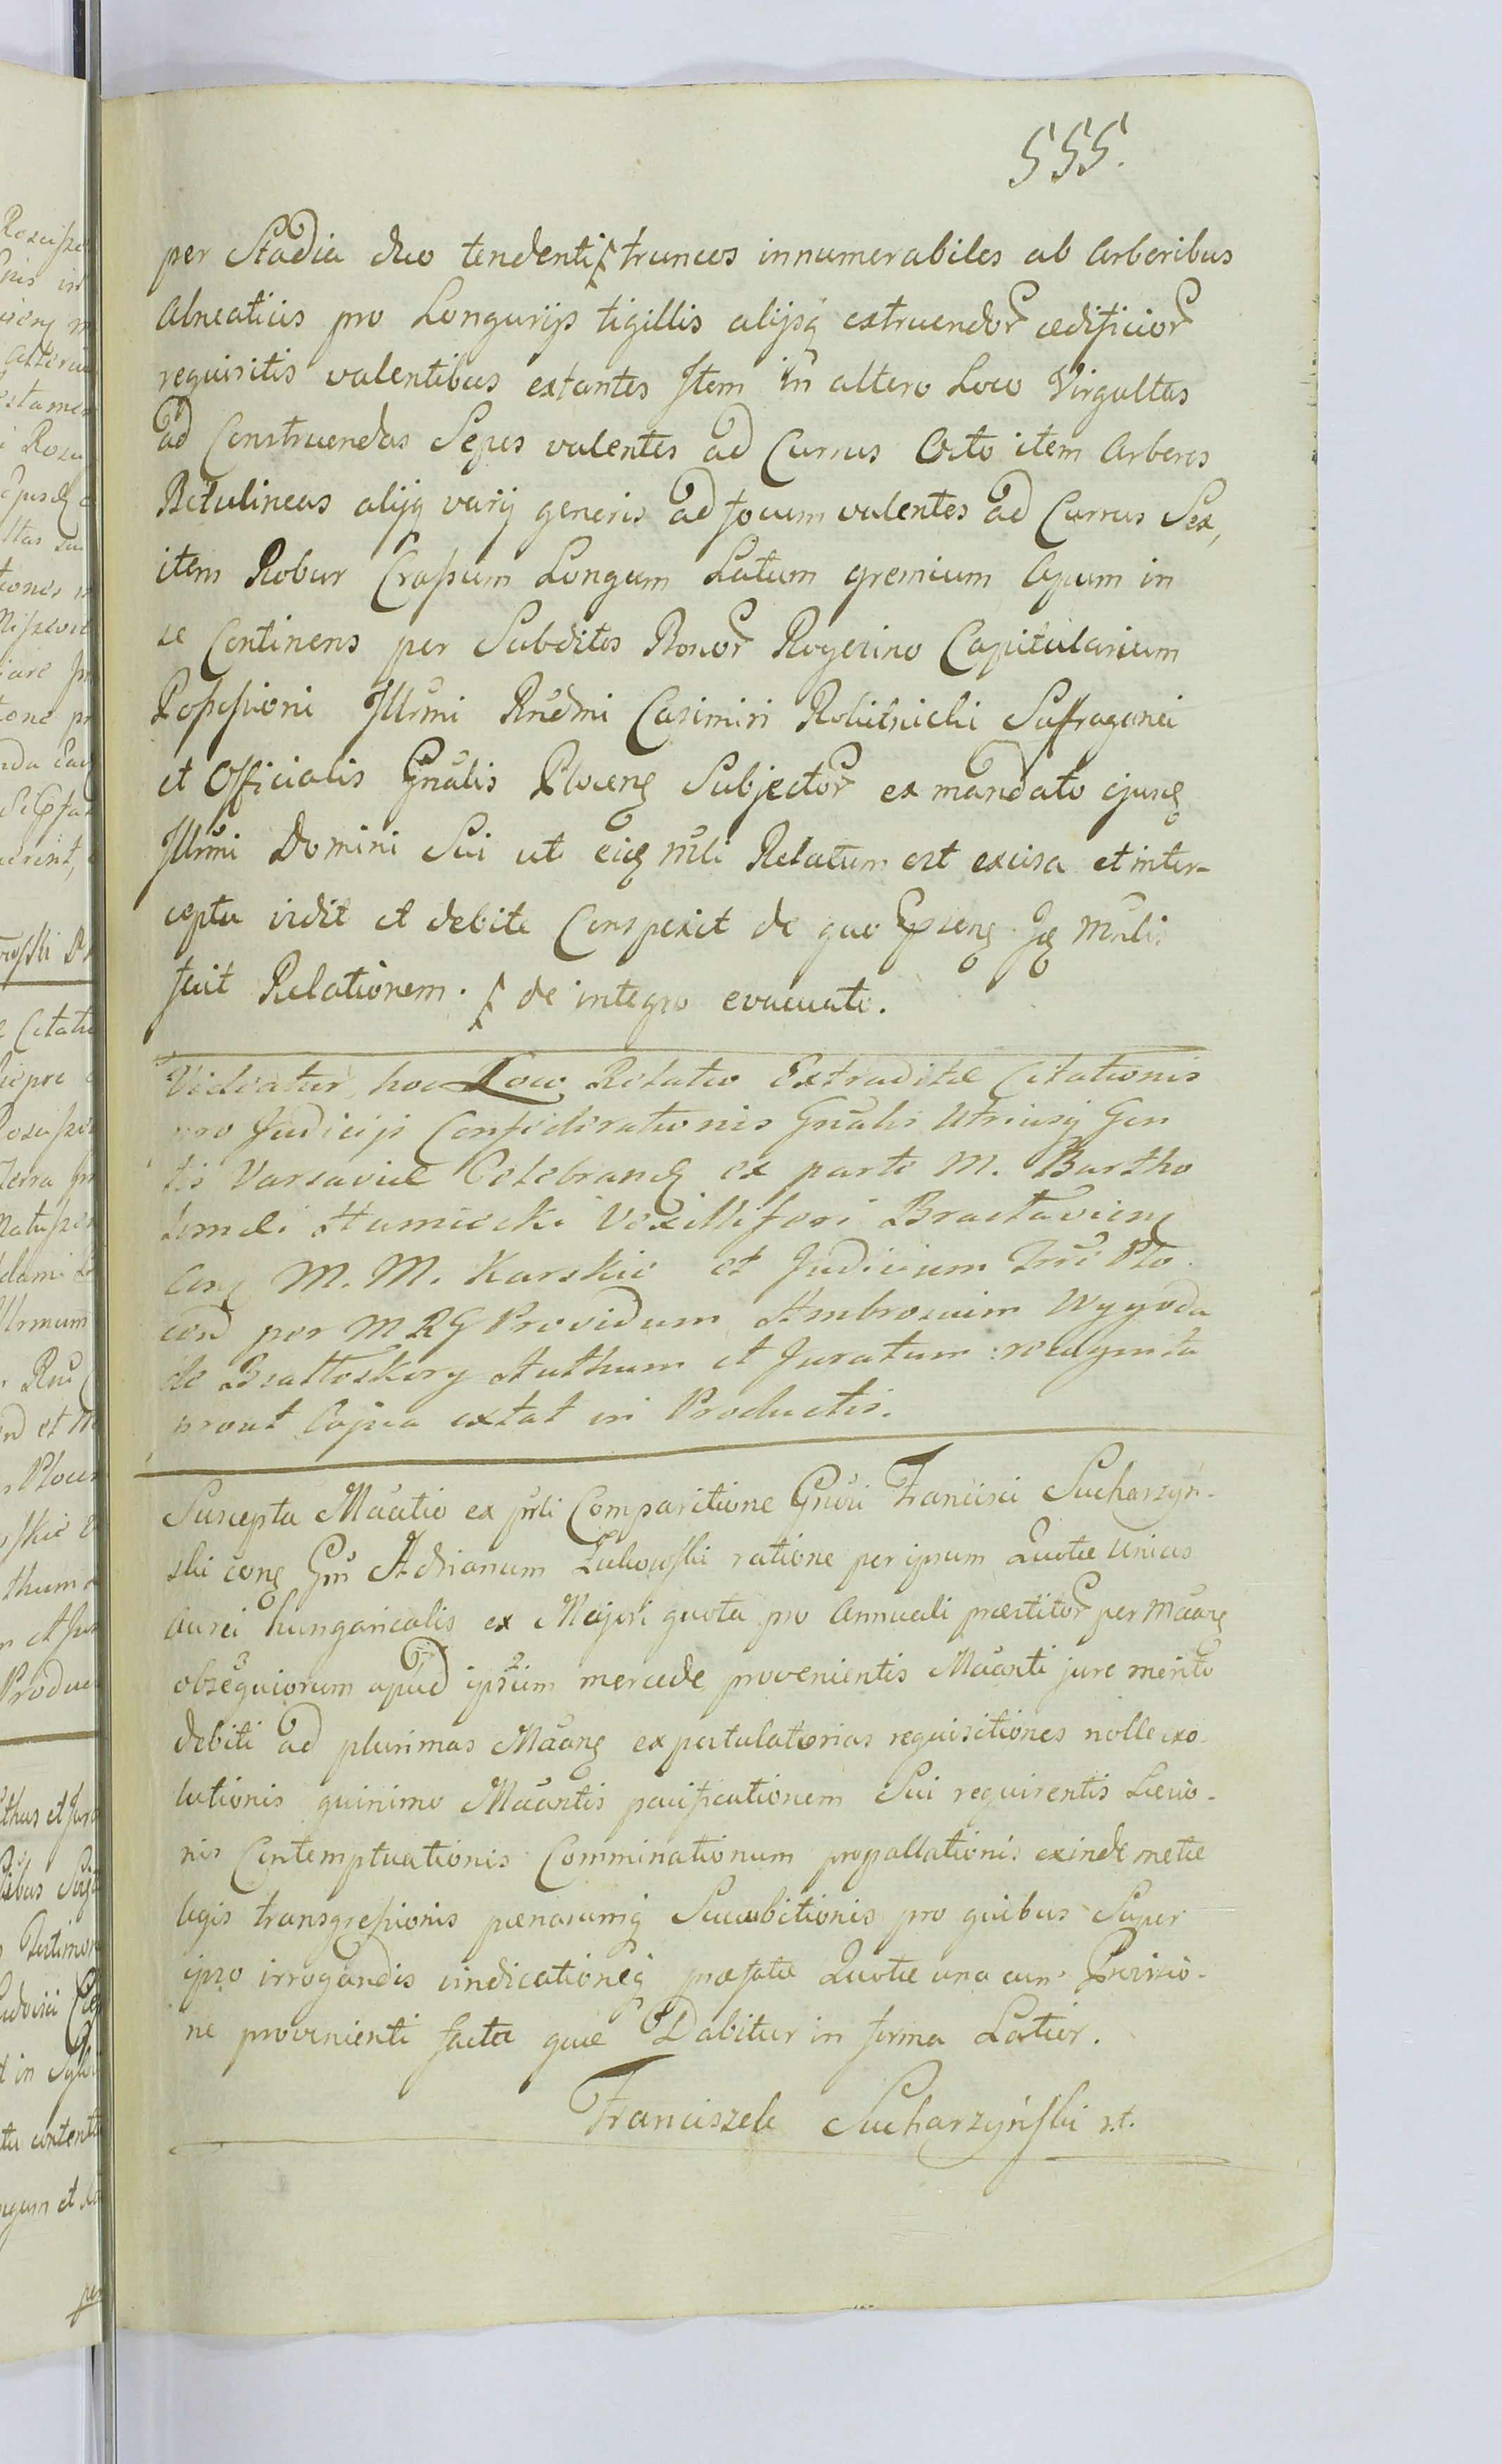 555.
per Stadia duo tendenti ʄ truncos innumerabiles ab Arboribus
Alneaticis pro Longurijs tigillis alijsq extruendor aedificior
requisitis valentibus extantes Item in altero Loco Virgultas
ad Construendas Sepes valentes ad Currus Octo item Arbores
Betulineas alijq varij generis ad focum valentes ad Currus Sex,
item Robur Crassum Longum Latum gremium Apum in
se Continens per Subditos Bonor Rogezino Capitularium
Possessioni Illrmi Rndmi Casimiri Rokitnicki Suffraganei
et Officialis Gnalis Plocens Subjector ex mandato ejusd
Illrmi Domini Sui uti eid mli Relatum est excisa et inter-
cepta vidit et debite Conspexit de quo Id Mnlis
fecit Relationem. ʄ de integro evacuato.
Videatur hoc Loco Relatio Extraditae Citationis
pro Judicijs Confederationis Gnalis Utriusq Gen
tis Varsaviae Celebrand ex parte M. Bartho
lomei Humiecki Vexilliferi Braclaviens
Cons M. M. Karskie et Judicium Trre Plo
cen per MRG Providum Ambrosium Wygoda
de Authum et Juratum :
prout Copia extat in Productis.
Suscepta Maatio ex prli Comparitione Gnosi Francisci Sucharzyń-
ski cong Gm Adrianum Żukowski ratione per ipsum Quotae unius
aurei hungaricalis ex Majori quota pro Annuali praestitor per Maang
obsequiorum apud ipsum mercede provenientis Maanti jure merito
debiti ad plurimas Maang expostulatorias requisitiones nolle exo-
lutionis quinimo Maantis pacificationem Sui requirentis Laesio-
nis Contemptuationis Comminationum propallationis exinde metae
legis transgressionis paenarumq Succubitionis pro quibus Super
ipso irrogandis vindicationeq praefatae Quotae una cum Provisio-
ne provenienti facta quae Dabitur in forma Latior.
Franciszek Sucharzyński